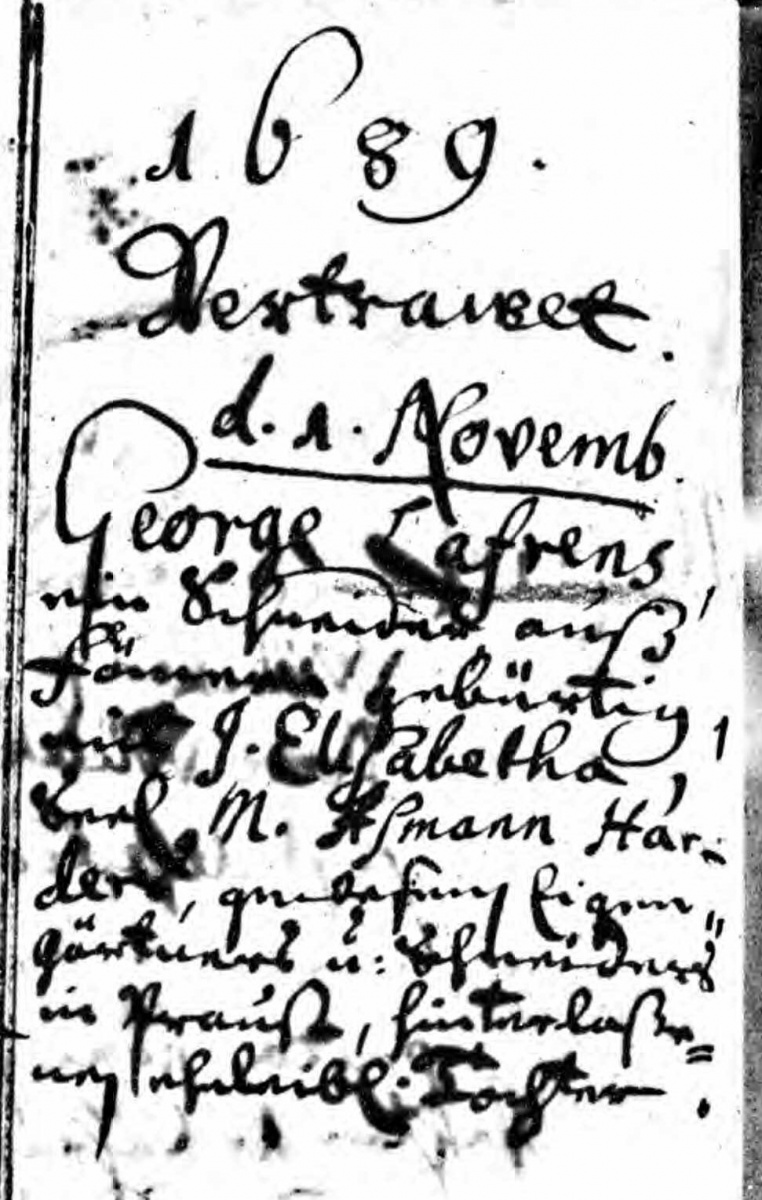 1689.
Vertrawet.
d. 1. Novemb.
George Lafrens,
ein Schneider auß
gebürtig,
mit J. Elisabetha,
Seel. M. Aßmann Har-
ders, gewesenen Eigen„
gärtners u: Schneiders
in Praust, hinterlaße=
nen ehleibl. Tochter.